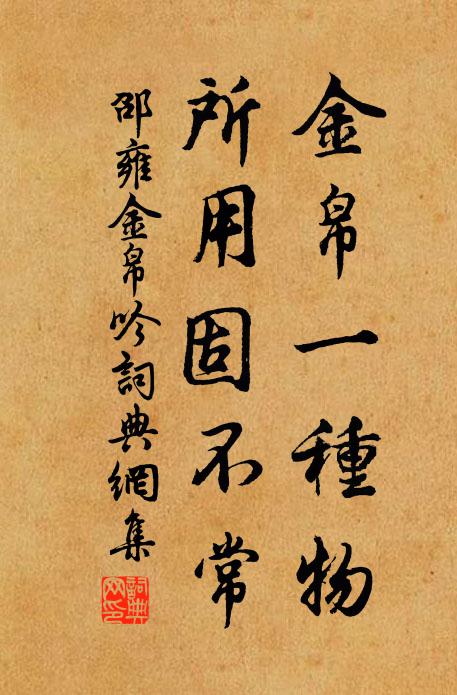 金帛一種物
所用固不常
邵雍金帛吟詞典網集
詞典網印